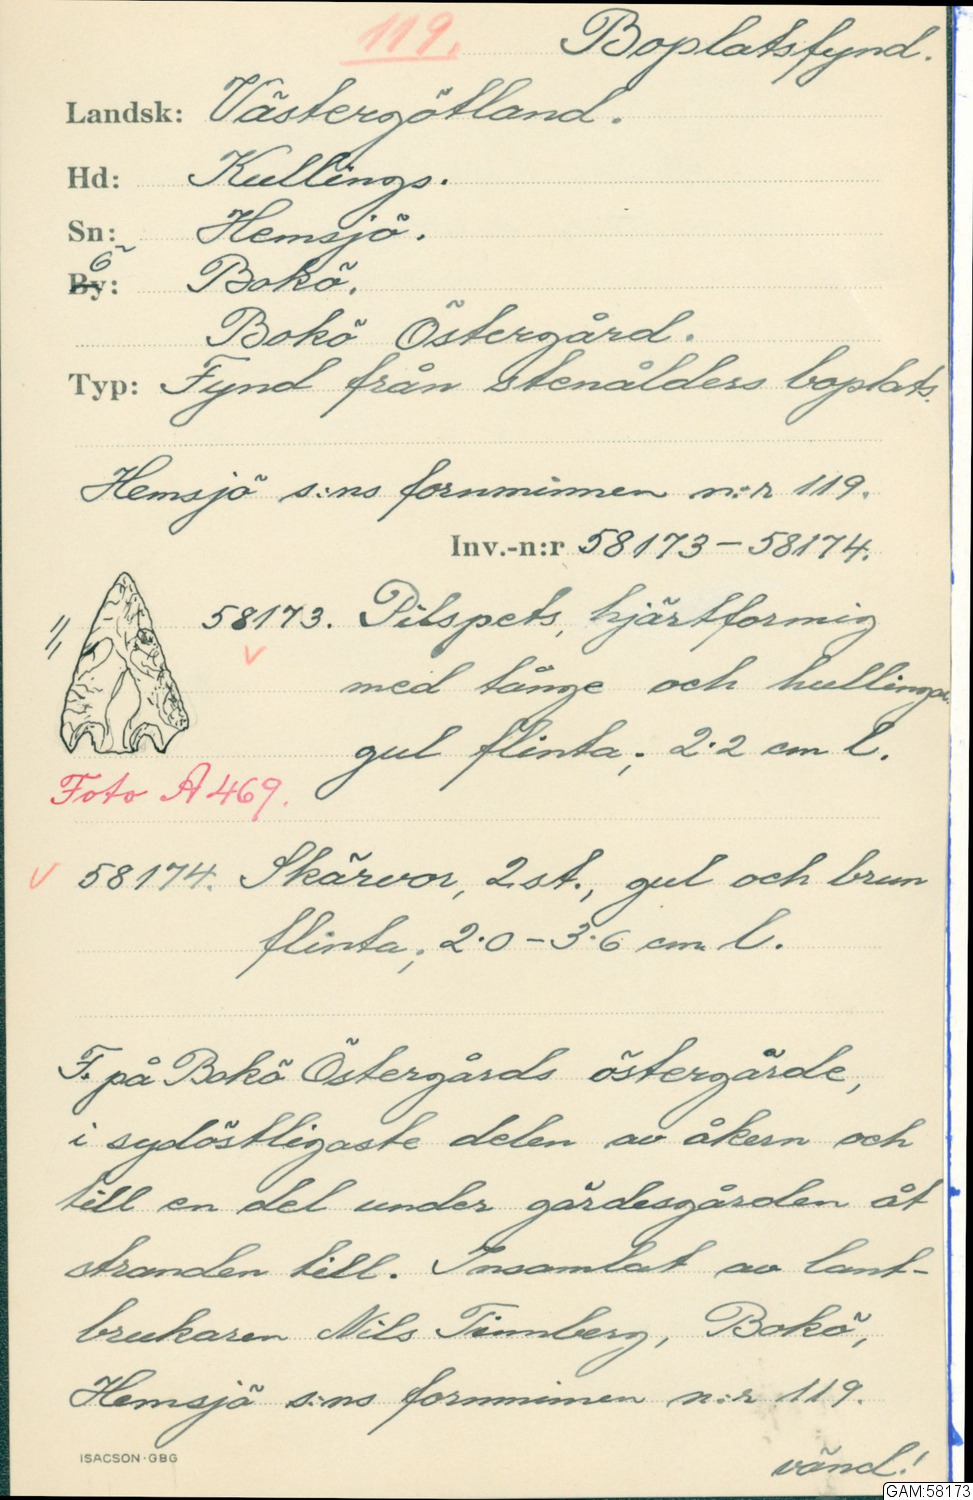 119. Boplatsfynd.
Landsk: Västergötland.
Hd: Kullings.
Sn: Hemsjö.
Ö
By: Bokö.
Bokö Östergård.
Typ: Fynd från stenålders boplats.
Hemsjö s:ns fornminnen n:r 119.
Inv.-n:r 58173–58174.
1/1 58173. Pilspets, hjärtformig
med tånge och hullingar
gul flinta; 2.2 cm l.
Foto A 469.
58174. Skärvor, 2 st., gul och brun
flinta; 2.0–3.6 cm l.
F. på Bokö Östergårds östergärde,
i sydöstligaste delen av åkern och
till en del under gärdesgården åt
stranden till. Insamlat av lant-
brukaren Nils Tinnberg, Bokö,
Hemsjö s:ns fornminnen n:r 119.
ISACSON·GBG
vänd!
GAM:58173